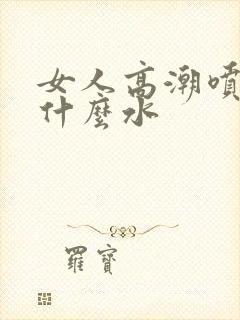 女人高潮噴
什麼水
羅寶